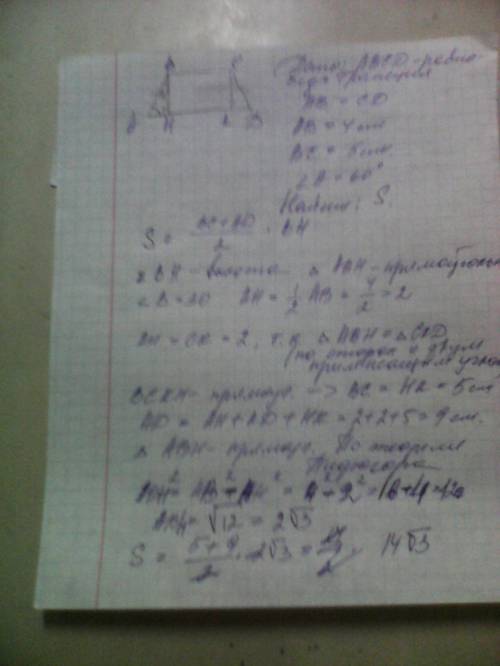 B C
A H K D
Дано: ABCD - равно-
трапеция
AB = CD
AB = 4 см
BC = 5 см.
∠A = 60°
Найти: S.
S = BC + AD / 2 · BH
BH - высота △ ABH - прямоугольн
∠B = 30 AH = 1/2 AB = 4/2 = 2
AH = CK = 2, т.к. △ ABH = △ CKD
(по стороне и двум
прилежащим углам
BCKH - прямоуг. -> BC = HK = 5 см
AD = AH + KD + HK = 2+2+5 = 9 см.
△ ABH - прямоуг. По теореме
Пифагора
= √12 = 2√3
S = 5+9 / 2 · 2√3 = 14√3